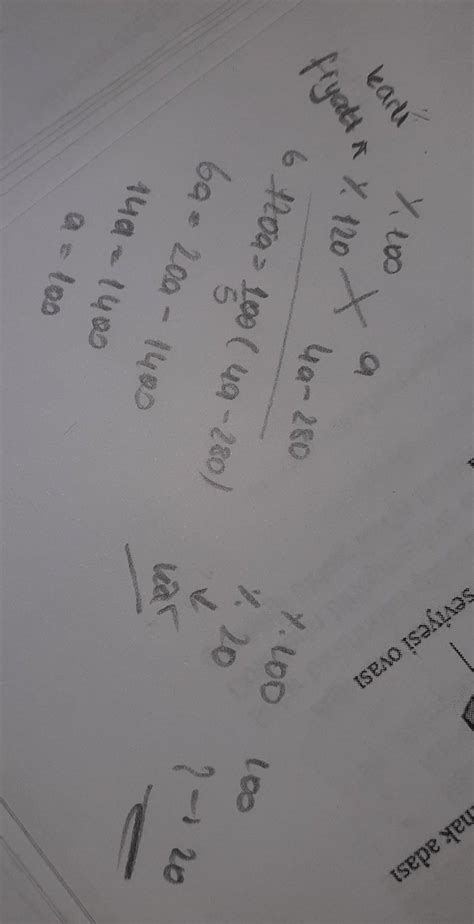 %100 a
karlı fiyatı ↖ %120 4a-280
6 120a = 100 (4a-280)
5
6a = 20a - 1400
14a = 1400
a = 100
%100 100
%20 ? → 20
↙
kar
seviyesi ovası
adası